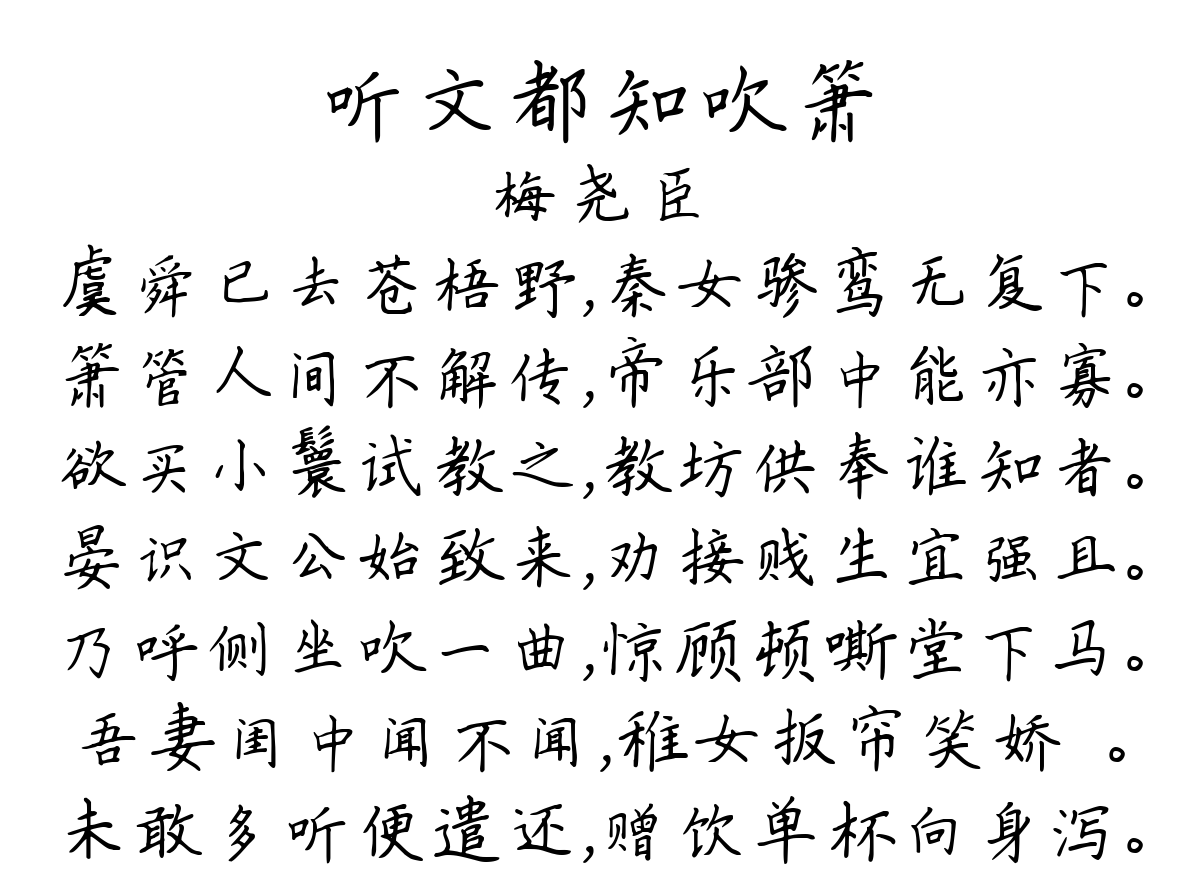 听文都知吹箫
梅尧臣
虞舜已去苍梧野,秦女骖鸾无复下。
箫管人间不解传,帝乐部中能亦寡。
欲买小鬟试教之,教坊供奉谁知者。
晏识文公始致来,劝接贱生宜强且。
乃呼侧坐吹一曲,惊顾顿嘶堂下马。
吾妻闺中闻不闻,稚女扳帘笑娇 。
未敢多听便遣还,赠饮单杯向身泻。